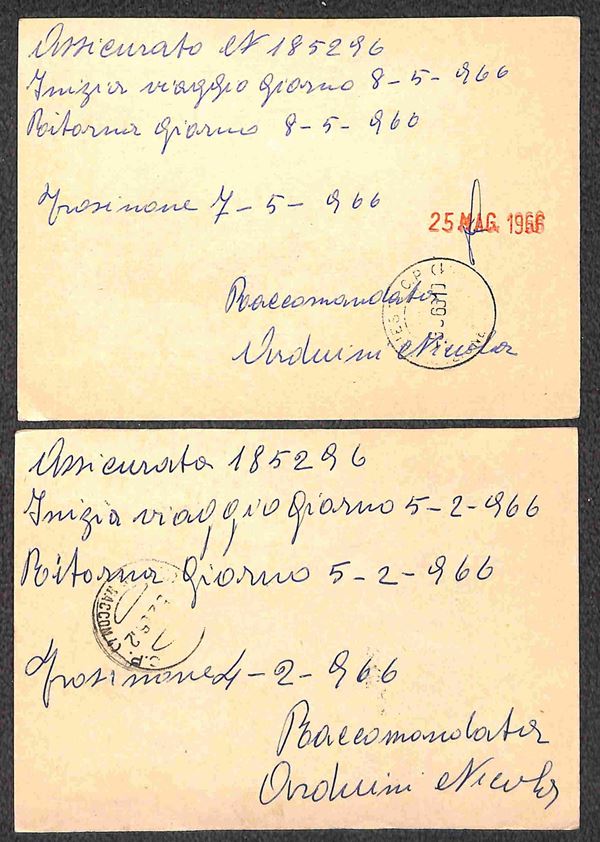 Assicurato N 185296
Inizia viaggio giorno 8-5-966
Ritorna giorno 8-5-966
Frosinone 7-5-966
25 MAG. 1966
Raccomandata
Arduini Nicola
Assicurata 185296
Inizia viaggio giorno 5-2-966
Ritorna giorno 5-2-966
RACCOM
C.P.
Frosinone 4-2-966
Raccomandata
Arduini Nicola